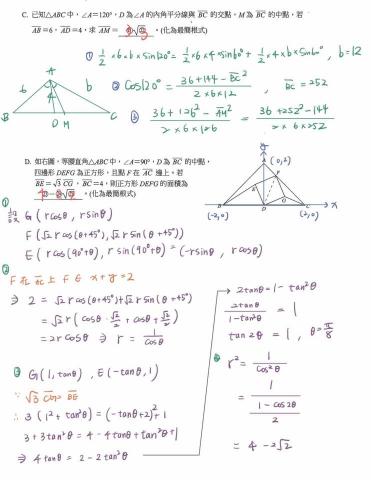 C. 已知△ABC中，∠A=120°，D為∠A的內角平分線與 BC 的交點，M 為 BC 的中點，若
AB=6，AD=4，求 AM= 。(化為最簡根式)
① 1/2 × 6 × b × sin120° = 1/2 × 6 × 4 sin60° + 1/2 × 4 × b × sin60°, b=12
② cos120° = (36+144-BC²)/(2×6×12) , BC=252
A
6
b
B
C
D M
D. 如右圖，等腰直角△ABC中，∠A=90°，D為 BC 的中點，
四邊形 DEFG 為正方形，且點 F 在 AC 邊上，若
BE=√3 CG，BC=4，則正方形 DEFG 的面積為
。(化為最簡根式)
y
A (0,2)
F
E
G
B
D
C
x
(-2,0)
(2,0)
①
G ( r cosθ, r sinθ )
F (√2 r cos(θ+45°), √2 r sin(θ+45°)
E ( r cos(90°+θ), r sin(90°+θ) = (-r sinθ, r cosθ)
②
⇒ 2 = √2 r cos(θ+45°)+√2 r sin(θ+45°)
= 2r cosθ ⇒ r = 1/cosθ
③ G(1, tanθ), E(-tanθ, 1)
∵ √3 CG = BE
∴ 3 (1²+tan²θ) = (-tanθ+2)²+1
3+3tan²θ = 4-4tanθ+tan²θ+1
⇒ 4tanθ = 2-2tan²θ
2tanθ = 1-tan²θ
2tanθ/(1-tan²θ) = 1
tan2θ = 1, θ=π/8
④ r² = 1/cos²θ
= 4-2√2